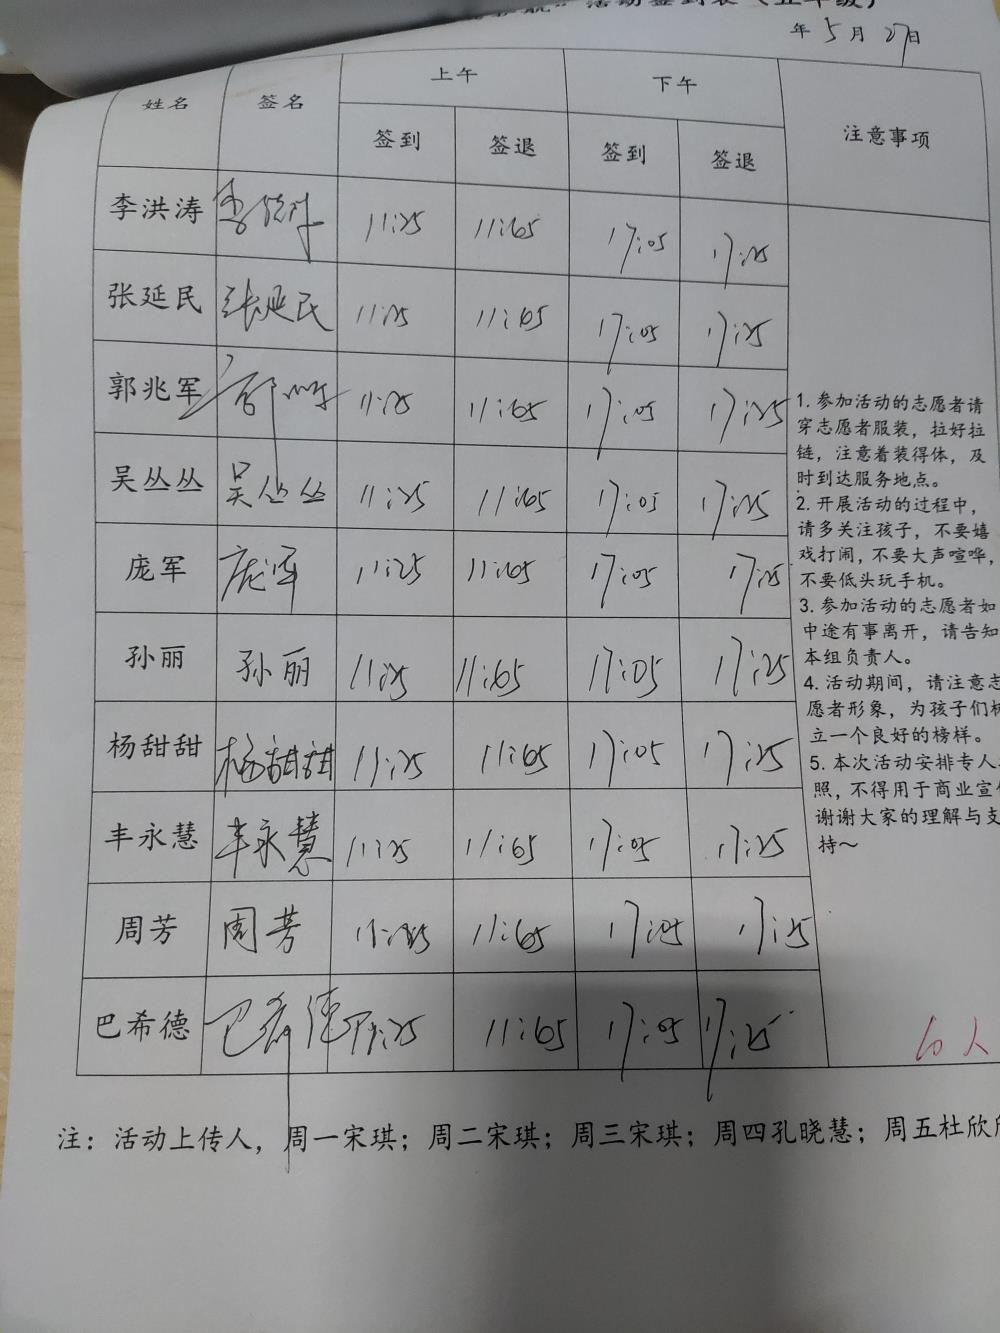 活动签到表（五年级）
年 5 月 27 日
姓名 签名 上午 下午 注意事项
签到 签退 签到 签退
李洪涛 11:25 11:65 17:05 17:25
张延民 张延民 11:25 11:65 17:05 17:25
郭兆军 11:25 11:65 17:05 17:25
吴丛丛 吴丛丛 11:25 11:65 17:05 17:25
庞军 庞军 11:25 11:65 17:05 17:25
孙丽 孙丽 11:25 11:65 17:05 17:25
杨甜甜 杨甜甜 11:25 11:65 17:05 17:25
丰永慧 丰永慧 11:25 11:65 17:05 17:25
周芳 周芳 11:25 11:65 17:05 17:25
巴希德 巴希德 11:25 11:65 17:05 17:25
1. 参加活动的志愿者请
穿志愿者服装，拉好拉
链，注意着装得体，及
时到达服务地点。
2. 开展活动的过程中，
请多关注孩子，不要嬉
戏打闹，不要大声喧哗，
不要低头玩手机。
3. 参加活动的志愿者如
中途有事离开，请告知
本组负责人。
4. 活动期间，请注意志
愿者形象，为孩子们树
立一个良好的榜样。
5. 本次活动安排专人
照，不得用于商业宣传
谢谢大家的理解与支
持～
10人
注：活动上传人，周一宋琪；周二宋琪；周三宋琪；周四孔晓慧；周五杜欣